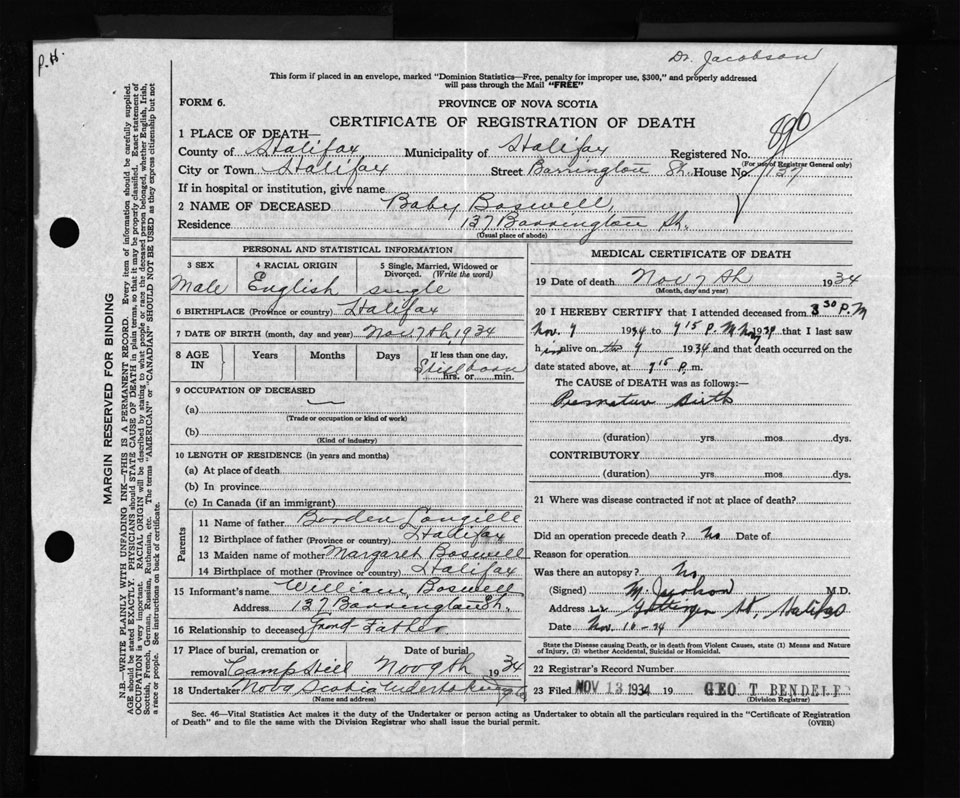 P.H.
Dr. Jacobson
This form if placed in an envelope, marked "Dominion Statistics—Free, penalty for improper use, $300," and properly addressed
will pass through the Mail "FREE"
FORM 6.
PROVINCE OF NOVA SCOTIA
CERTIFICATE OF REGISTRATION OF DEATH
890
1 PLACE OF DEATH—
County of Halifax Municipality of Halifax Registered No.
(For use of Registrar General only)
City or Town Halifax Street Barrington St. House No. 137
If in hospital or institution, give name
2 NAME OF DECEASED Baby Boswell,
Residence 137 Barrington St.
(Usual place of abode)
PERSONAL AND STATISTICAL INFORMATION
3 SEX 4 RACIAL ORIGIN 5 Single, Married, Widowed or
Divorced. (Write the word)
Male English single
6 BIRTHPLACE (Province or country) Halifax
7 DATE OF BIRTH (month, day and year) Nov 7th, 1934
8 AGE IN Years Months Days If less than one day,
Stillborn
hrs. or min.
9 OCCUPATION OF DECEASED
(a)
(Trade or occupation or kind of work)
(b)
(Kind of industry)
10 LENGTH OF RESIDENCE (in years and months)
(a) At place of death
(b) In province
(c) In Canada (if an immigrant)
Parents
11 Name of father Borden Langille
12 Birthplace of father (Province or country) Halifax
13 Maiden name of mother Margaret Boswell
14 Birthplace of mother (Province or country) Halifax
15 Informant's name William Boswell
Address 137 Barrington St.
16 Relationship to deceased Grand-Father
17 Place of burial, cremation or Date of burial,
removal Camp Hill Nov 9th 1934
18 Undertaker Nova Scotia Undertaking Co
(Name and address)
MEDICAL CERTIFICATE OF DEATH
19 Date of death Nov 7th 1934
(Month, day and year)
20 I HEREBY CERTIFY that I attended deceased from 3 30 P.M
Nov. 7 1934 to 7 15 P.M that I last saw
him alive on 7 1934 and that death occurred on the
date stated above, at 7 15 P. m.
The CAUSE OF DEATH was as follows:—
Premature Birth
(duration) yrs. mos. dys.
CONTRIBUTORY
(duration) yrs. mos. dys.
21 Where was disease contracted if not at place of death?
Did an operation precede death? No Date of
Reason for operation
Was there an autopsy? No
(Signed) M. Jacobson M.D.
Address Gottingen St, Halifax
Date Nov. 10 - 34
State the Disease causing Death, or in death from Violent Causes, state (1) Means and Nature
of Injury, (2) whether Accidental, Suicidal or Homicidal.
22 Registrar's Record Number
23 Filed NOV 13 1934 19 GEO T. BENDELE
(Division Registrar)
Sec. 46—Vital Statistics Act makes it the duty of the Undertaker or person acting as Undertaker to obtain all the particulars required in the "Certificate of Registration
of Death" and to file the same with the Division Registrar who shall issue the burial permit. (OVER)
MARGIN RESERVED FOR BINDING
N.B.—WRITE PLAINLY WITH UNFADING INK—THIS IS A PERMANENT RECORD. Every item of information should be carefully supplied.
AGE should be stated EXACTLY. PHYSICIANS should STATE CAUSE OF DEATH in plain terms, so that it may be properly classified. Exact statement of
OCCUPATION is very important. RACIAL ORIGIN will be described by stating to what people or race the deceased person belonged, whether English, Irish,
Scottish, French, German, Russian, Ruthenian, etc. The terms "AMERICAN" or "CANADIAN" SHOULD NOT BE USED as they express citizenship but not
a race or people. See instructions on back of certificate.